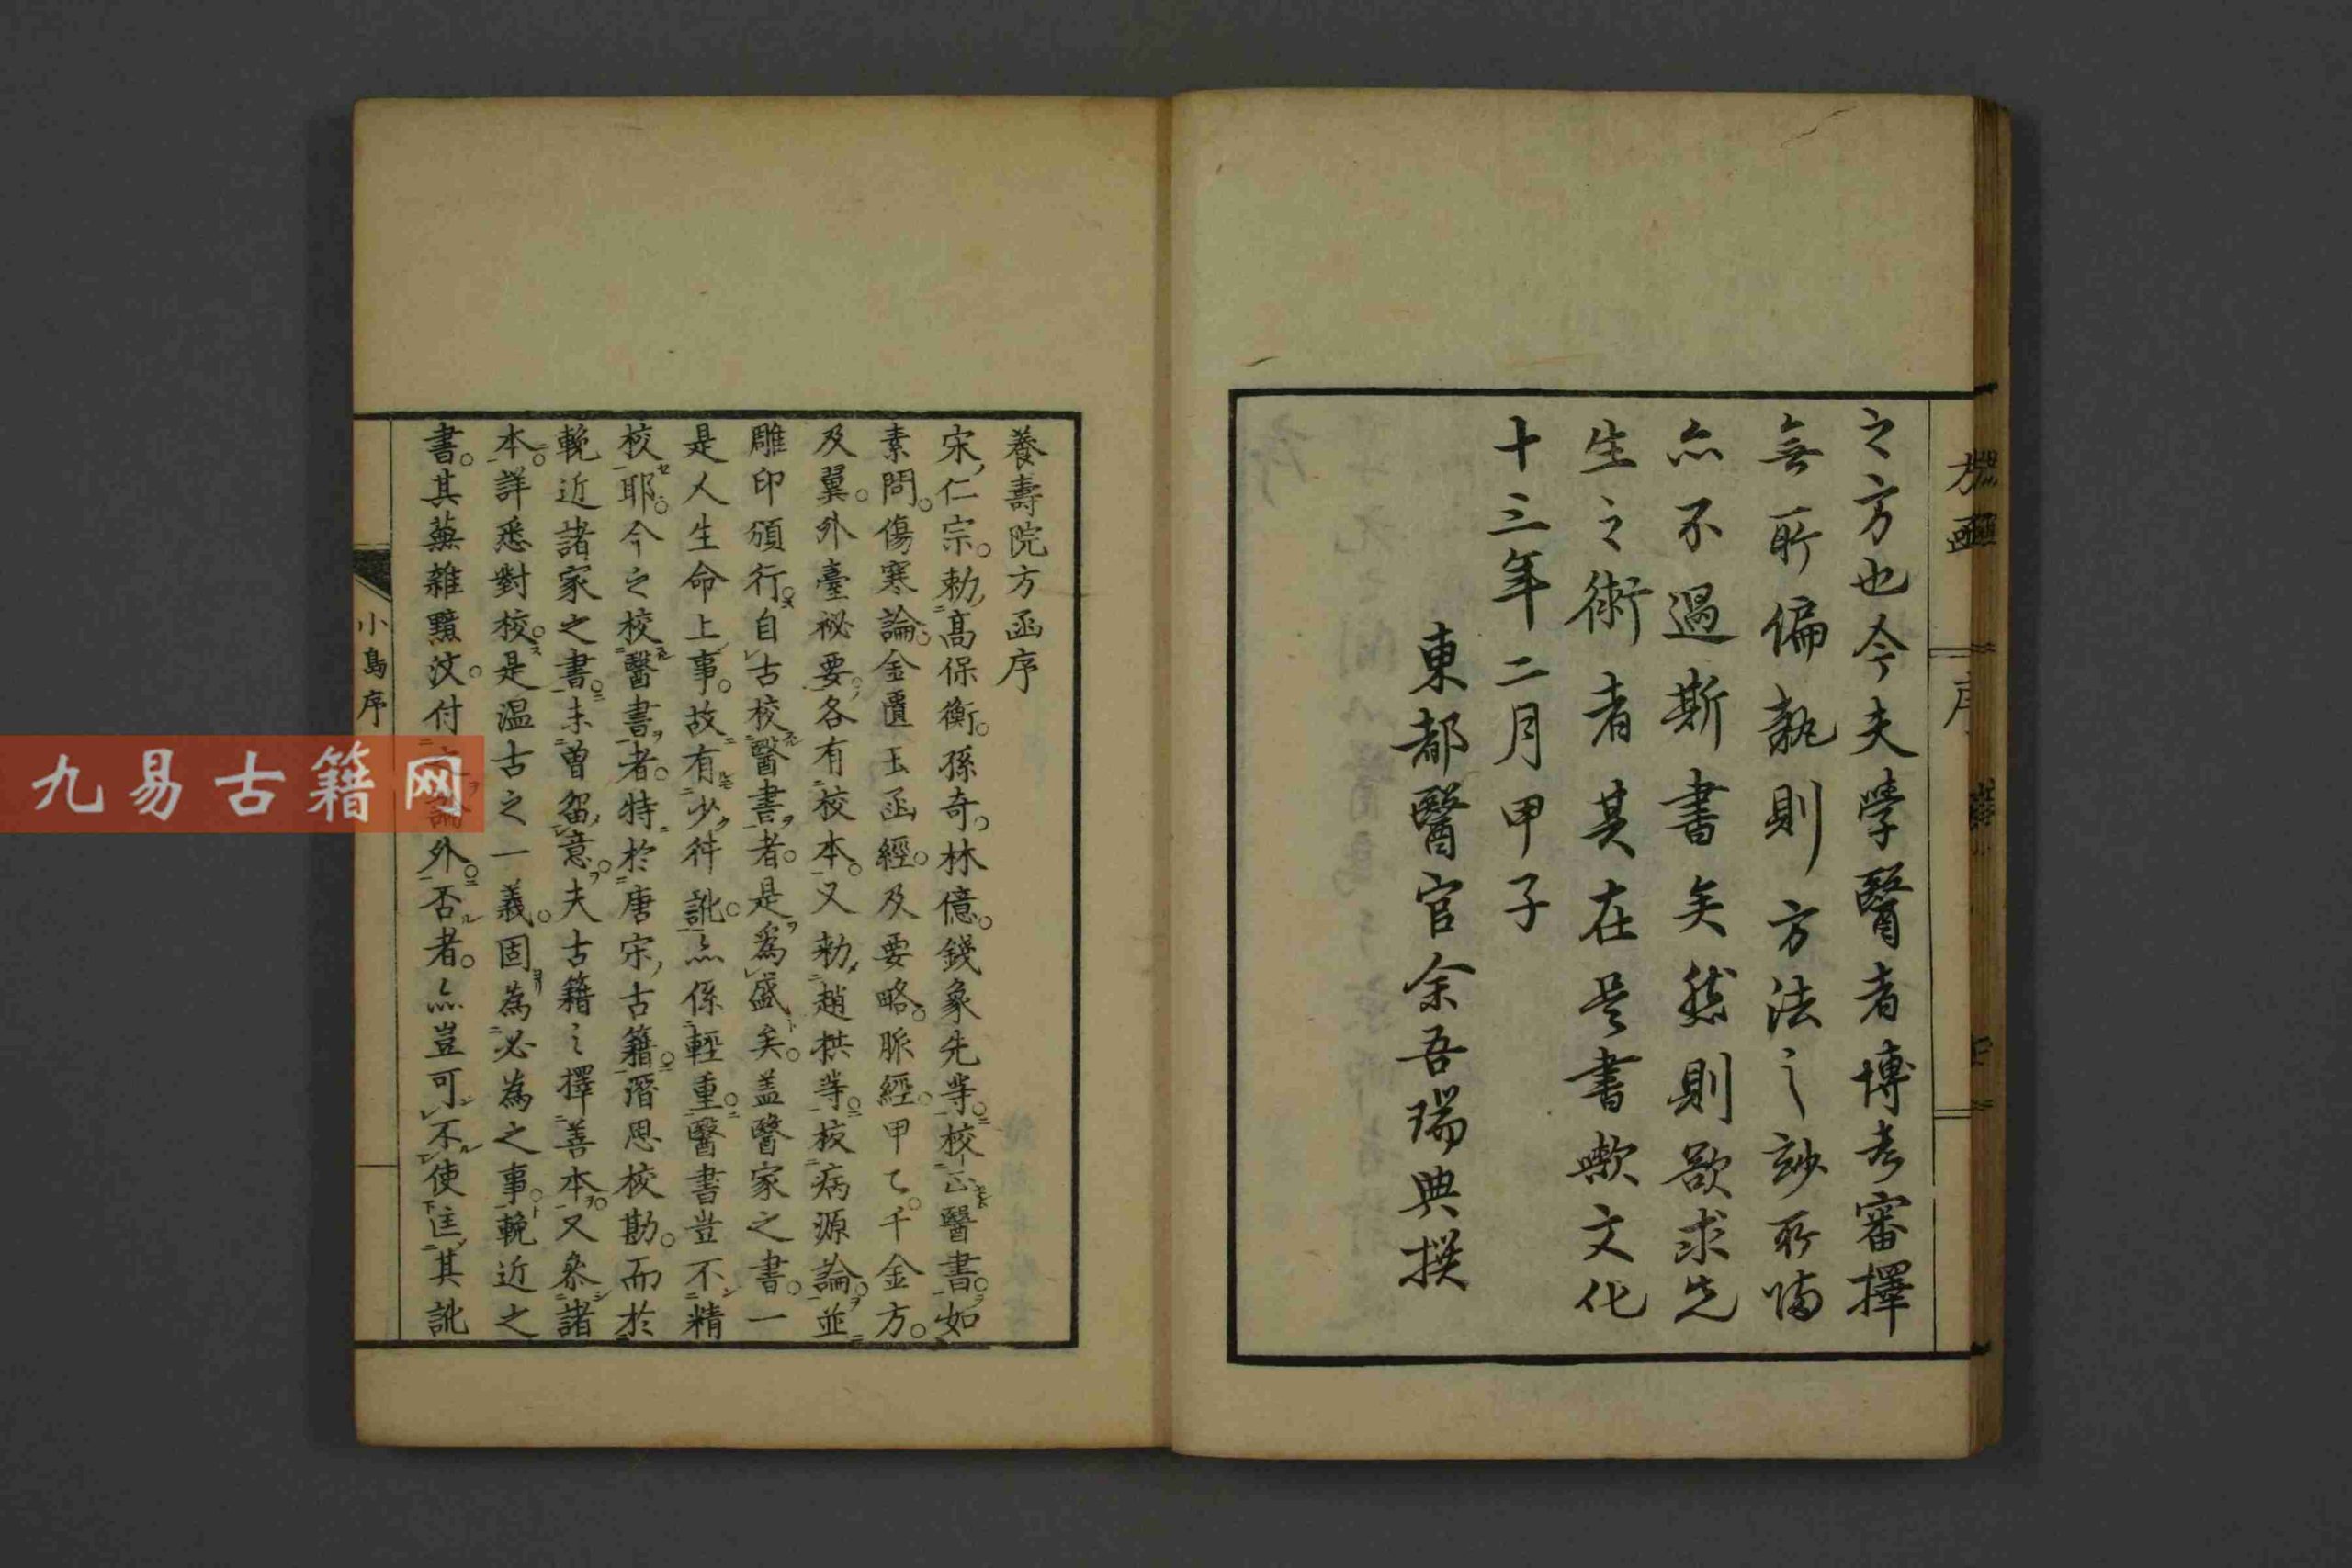 之方也今夫學醫者博考審擇
無所偏執則方法之玅所喃
亦不過斯書矣然則欲求先
生之術者其在是書歟文化
十三年二月甲子
東都醫官余吾瑞典撰
養壽院方函序
宋仁宗勅高保衡孫奇林億錢象先等校正醫書如
素問傷寒論金匱玉函經及要略脈經甲乙千金方
及翼外臺祕要各有校本又勅趙拱等校病源論並
雕印頒行自古校醫書者是爲盛矣盖醫家之書一
是人生命上事故有少件訛亦係輕重醫書豈不精
校耶今之校醫書者特於唐宋古籍潛思校勘而於
輓近諸家之書未曾留意夫古籍之擇善本又叅諸
本詳悉對校是温古之一義固為必為之事輓近之
書其蕪雜黯汶付之論外否者亦豈可不使匡其訛
小島序
九易古籍网